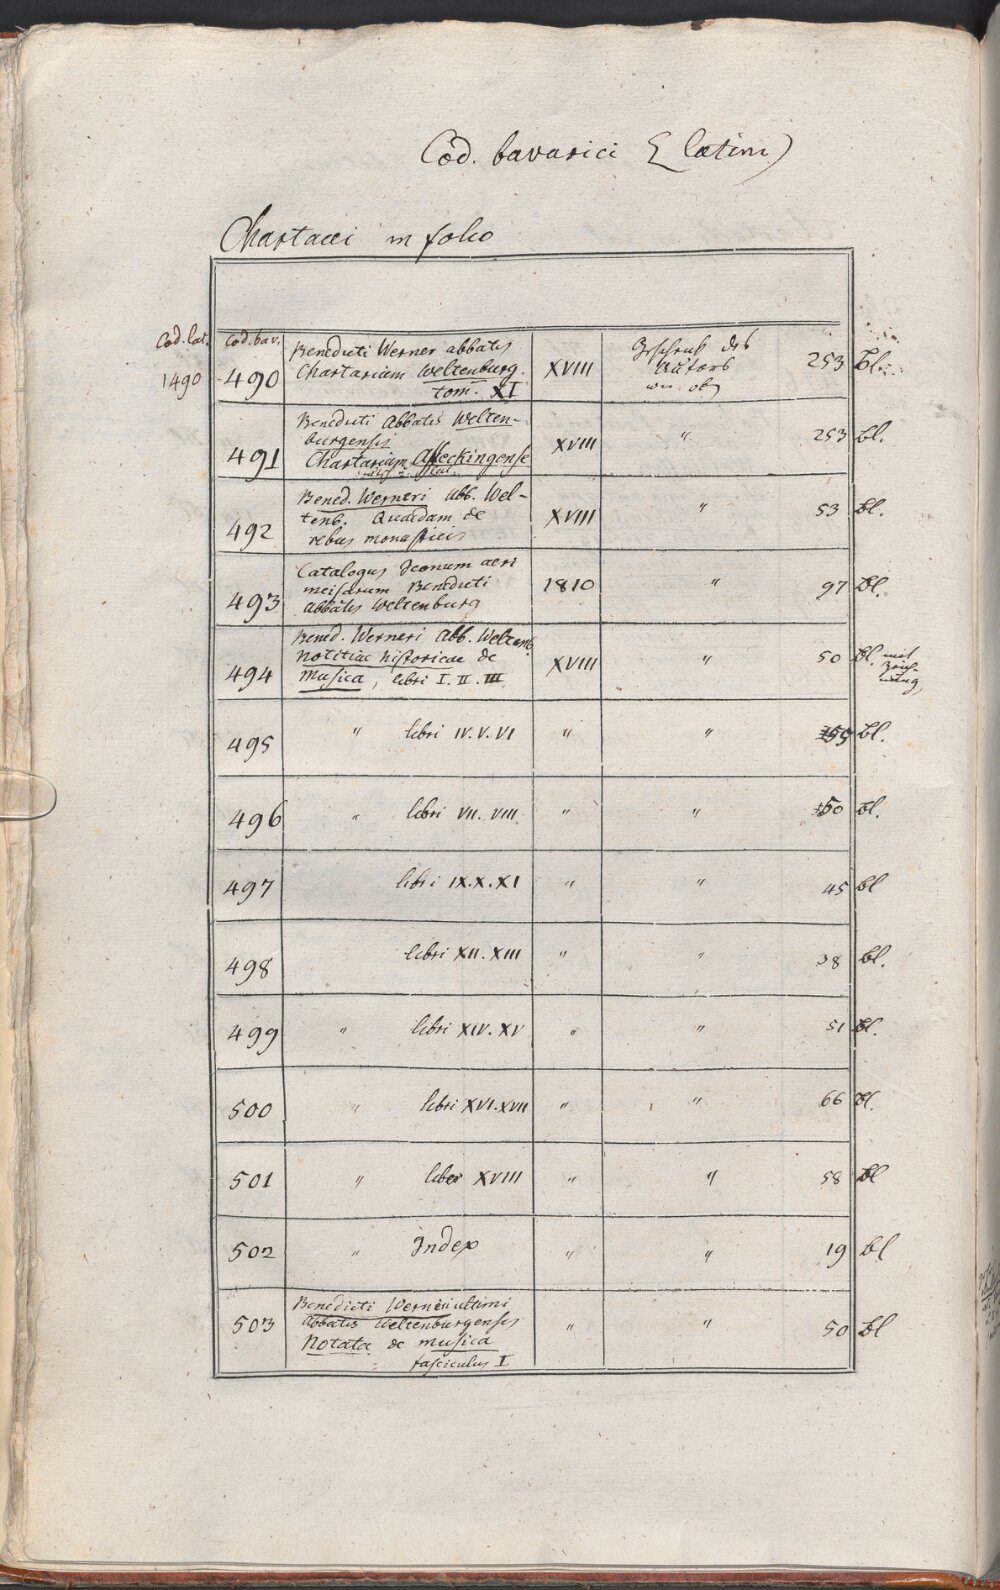 Cod. bavarici (latini)
Chartacei in folio
Cod. lat. Cod. bav.
1490 490 Benedicti Werner abbatis XVIII Geschenk des 253 Bl.
Chartarium Weltenburg. Autors
tom. XI wie oben
491 Benedicti Abbatis Welten- XVIII " 253 Bl.
burgensis
Chartarium Affeckingense
492 Bened. Werneri abb. Wel- XVIII " 53 Bl.
tenb. Quaedam de
rebus monasticis
493 Catalogus Iconum aeri 1810 " 97 Bl.
incisarum Benedicti
Abbatis Weltenburg
494 Bened. Werneri Abb. Weltenb. XVIII " 50 Bl. mit
Notitiae historicae de Zeich-
Musica, libri I. II. III nung
495 " libri IV. V. VI " " 55 Bl.
496 " libri VII. VIII " " 50 Bl.
497 libri IX. X. XI " " 45 Bl
498 libri XII. XIII " " 38 Bl.
499 " libri XIV. XV " " 51 Bl.
500 " libri XVI. XVII " " 66 Bl.
501 " liber XVIII " " 58 Bl
502 " Index " " 19 Bl
503 Benedicti Werneri ultimi " " 50 Bl
Abbatis Weltenburgensis
Notata de musica
fasciculus I